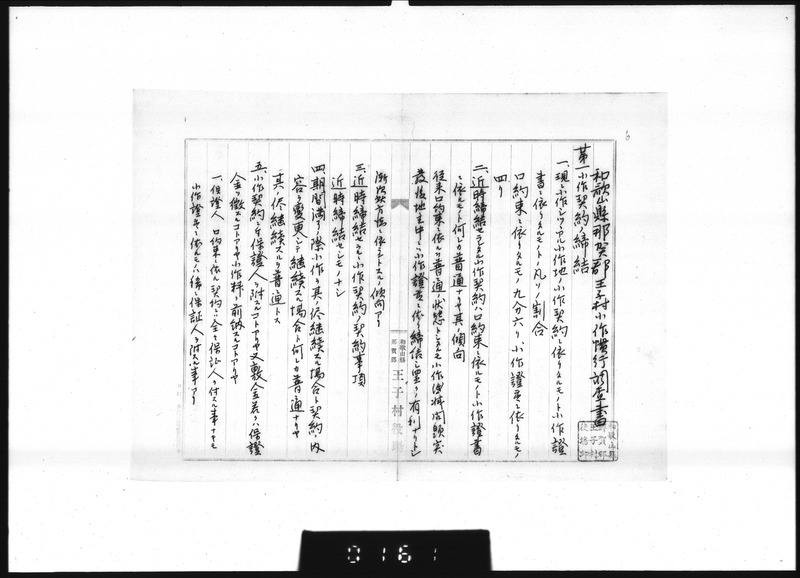 和歌山縣那賀郡王子村小作慣行調査書
第一 小作契約ノ締結
一、現ニ小作シツヽアル小作地ノ小作契約ニ依リタルモノト小作證
書ニ依リタルモノトノ凡ソノ割合
口約束ニ依リタルモノ九分六リ、小作證書ニ依リタルモノ
四リ
二、近時締結セラルヽ小作契約ハ口約束ニ依ルモノト小作證書
ニ依ルモノト何レカ普通ナリヤ其ノ傾向
從来口約束ニ依ルヲ普通ノ状態トシタルモ小作
最後地主中ニハ小作證書ニ依リ締結シ置クノ有利ナリトシ
漸次
ニ依ラントスルノ傾向アリ
三、近時締結セラルヽ小作契約ノ契約事項
近時締結セシモノナシ
四、期間満了ノ際小作ヲ其ノ侭継続スル場合ト契約ノ内
容ヲ変更シテ継続スル場合ト何レカ普通ナリヤ
其ノ侭継続スルヲ普通トス
五、小作契約ニ付保證人ヲ附スルコトアリヤ又敷金若クハ保證
金ヲ徴スルコトアリヤ小作料ヲ前納スルコトアリヤ
一、保證人 口約束ニ依ル契約ニハ全ク保証人ヲ付スル事ナキモ
小作證書ニ依ルモノハ
保証人ヲ付スル事アリ
和歌山縣
那賀郡
王子村役場
0161